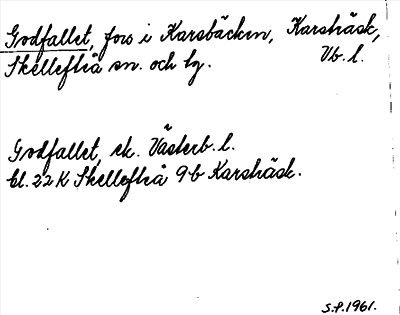 Godfallet, fors i Karsbäcken, Karsträsk,
Skellefteå sn. och tg. Vb. l.
Godfallet, ek. Västerb. l.
bl. 22 K Skellefteå 9-b Karsträsk.
S.P. 1961.